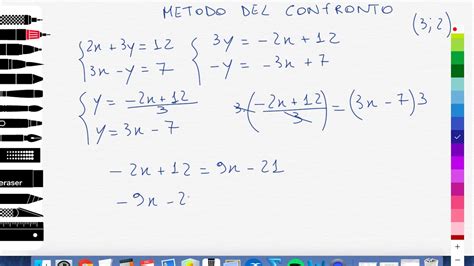 METODO DEL CONFRONTO
(3; 2)
{2x + 3y = 12 {3y = -2x + 12
{3x - y = 7 {-y = -3x + 7
{y = (-2x + 12)/3 3((-2x + 12)/3) = (3x - 7)3
{y = 3x - 7
-2x + 12 = 9x - 21
-9x - 2
eraser